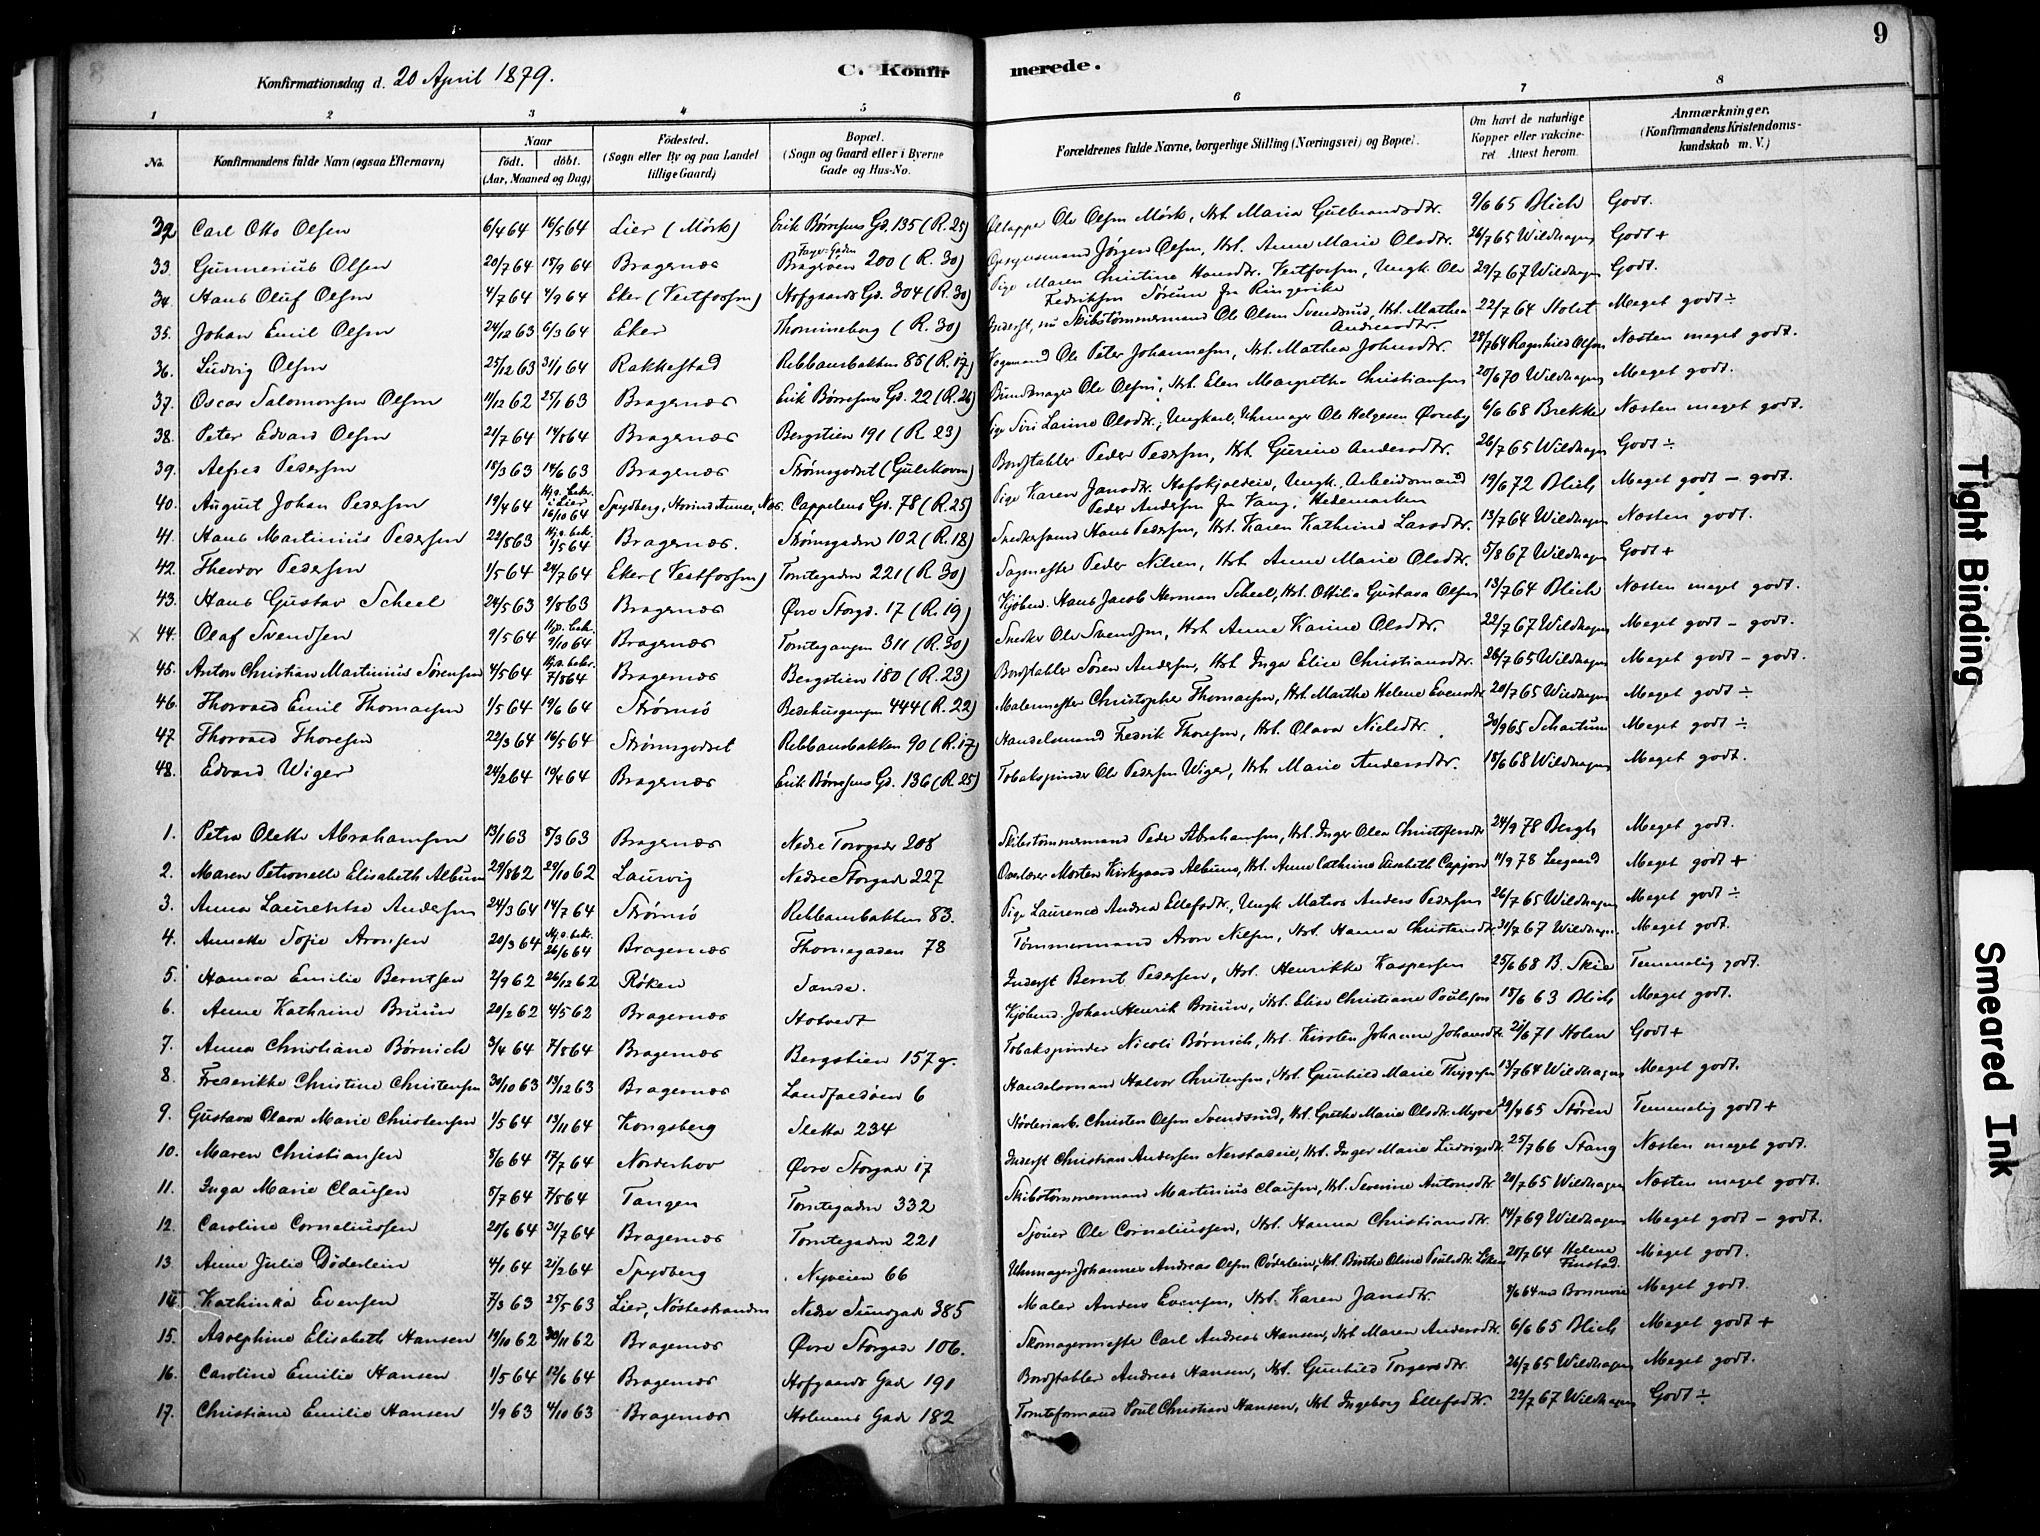 9
Konfirmationsdag d. 20 April 1879.
C. Konfirmerede.
1 2 3 4 5 6 7 8
No.
Konfirmandens fulde Navn (ogsaa Efternavn)
Naar
født. døbt.
(Aar, Maaned og Dag)
Fødested.
(Sogn eller By og paa Landet
tillige Gaard)
Bopæl.
(Sogn og Gaard eller i Byerne
Gade og Hus-No.
Forældrenes fulde Navne, borgerlige Stilling (Næringsvei) og Bopæl.
Om havt de naturlige
Kopper eller vakcine-
ret Attest herom.
Anmærkninger.
(Konfirmandens Kristendoms-
kundskab m. V.)
32 Carl Otto Olsen 6/4 64 16/5 64 Lier (Mörk) Erik Børresens Gd. 135 (R. 25) Øltapper Ole Olsen Mörk, Hst. Maria Gulbrandsdtr. 9/6 65 Blich Godt.
33. Gunnerius Olsen 20/7 64 18/9 64 Bragernæs 200 (R. 30) Jörgen Olsen, Hst. Anne Marie Olsdtr. 26/7 65 Wildhagen Godt +
34. Hans Oluf Olsen 4/7 64 4/9 64 Eker (Vestfossen) Hofgaards Gd. 304 (R. 30) Pige Maren Christine Hansdtr. Vestfossen, Ungk. Ole
Fredriksen Sørum fra Ringerike 29/7 67 Wildhagen Godt.
35. Johan Emil Olsen 24/12 63 6/3 64 Eker Thomineborg (R. 30) Inderst, nu Skibstømmermand Ole Olsen Svendsrud, Hst. Mathea
Andreasdtr. 22/7 64 Holst Meget godt ÷
36. Ludvig Olsen 25/12 63 31/1 64 Rakkestad Rebbansbakken 85 (R. 17) Vognmand Ole Peter Johannesen, Hst. Mathea Johnsdtr. 28/7 64 Ragnhild Olsen Næsten meget godt.
37. Oscar Salomonsen Olsen 11/12 62 25/1 63 Bragernæs Erik Børresens Gd. 22 (R. 26) Bundtmager Ole Olsen, Hst. Elen Margrethe Christiansen 20/6 70 Wildhagen Meget godt.
38. Peter Edvard Olsen 21/7 64 14/8 64 Bragernæs Bergstien 191 (R. 23) Pige Siri Laurine Olsdtr., Ungkarl, Uhrmager Ole Helgesen Øvreby 6/6 68 Brekke Næsten meget godt.
39. Alfred Pedersen 18/3 63 14/6 63 Bragernæs Strømsgodset (Gulskoven) Bordstabler Peder Pedersen, Hst. Gurine Andersdtr. 26/7 65 Wildhagen Godt ÷
40. August Johan Pedersen 19/4 64 Hj.d. bek. i Lier 16/10 64 Spydberg, Næs. Cappelens Gd. 78 (R. 25) Pige Karen Jansdtr. Ungk. Arbeidsmand
Peder Andersen fra Vang, Hedemarken 19/6 72 Blich Meget godt – godt.
41. Hans Martinius Pedersen 22/8 63 Hj.d. bek. 1/5 64 Bragernæs. Strømsgaden 102 (R. 18) Snedkersvend Hans Pedersen, Hst. Karen Kathrine Larsdtr. 13/7 64 Wildhagen Næsten godt.
42. Theodor Pedersen 1/5 64 24/7 64 Eker (Vestfossen) Tomtegaden 221 (R. 30) Sagmester Peder Nilsen, Hst. Anne Marie Olsdtr. 5/8 67 Wildhagen Godt +
43. Hans Gustav Scheel 24/5 63 9/8 63 Bragernæs Øvre Storgd. 17 (R. 19) Kjøbmd. Hans Jacob Herman Scheel, Hst. Ottilia Gustava Olsen 13/7 64 Blich Næsten meget godt.
44. Olaf Svendsen 9/5 64 Hj.d. bek. 9/10 64 Bragernæs Tomtegangen 311 (R. 30) Snedker Ole Svendsen, Hst. Anne Karine Olsdtr. 22/7 67 Wildhagen Meget godt – godt.
45. Anton Christian Martinius Sørensen 4/5 64 Hj.d. bek. 7/8 64 Bragernæs Bergstien 180 (R. 23) Bordstabler Søren Andersen, Hst. Inga Elise Christiansdtr. 26/7 65 Wildhagen Meget godt – godt.
46. Thorvald Emil Thomasen 1/5 64 19/6 64 Strømsö Bedehusgangen 444 (R. 22) Malermester Christopher Thomassen, Hst. Marthe Helene Evensdtr. 20/7 65 Wildhagen Meget godt ÷
47 Thorvald Thoresen 22/3 64 16/5 64 Strømsgodset Rebbansbakken 90 (R. 17) Handelsmand Fredrik Thoresen, Hst. Olava Nielsdtr. 30/9 65 Schartum Meget godt ÷
48. Edvard Wiger 24/2 64 10/4 64 Bragernæs Erik Børresens Gd. 136 (R. 25) Tobakspinder Ole Pedersen Wiger, Hst. Marie Andersdtr. 18/6 68 Wildhagen Meget godt.
1. Petra Olette Abrahamsen 13/1 63 8/3 63 Bragernæs Nedre Torvgade 208 Skibstømmermand Peder Abrahamsen, Hst. Inger Olea Christofersdtr. 24/9 78 Bergh Meget godt.
2. Maren Petronelle Elisabeth Album 29/8 62 29/10 62 Laurvig Nedre Storgade 227 Overlærer Morten Kirkgaard Album, Hst. Anne Cathrine Elisabeth Capjon 11/9 78 Leegaard Meget godt +
3. Anna Laurentse Andersen 24/3 64 14/7 64 Strømsö Rebbansbakken 83. Pige Laurence Andrea Ellefsdtr., Ungk. Matros Anders Pedersen 26/7 65 Wildhagen Meget godt ÷
4. Annette Sofie Aronsen 20/3 64 Hj.d. bek. 26/6 64 Bragernæs Thornegaden 78 Tømmermand Aron Nilsen, Hst. Hanna Christensdtr. 31/7 67 Wildhagen Meget godt.
5. Hanna Emilie Berntsen 2/9 62 26/12 62 Røken Sanse. Inderst Bernt Pedersen, Hst. Henrikke Kaspersen 25/6 68 B. Skie Temmelig godt.
6. Anne Kathrine Bruun 20/2 62 4/5 62 Bragernæs Hotvedt Kjøbmd. Johan Henrik Bruun, Hst. Elise Christiane Poulsen 18/6 63 Blich Meget godt.
7. Anna Christiane Børnich 3/4 64 7/8 64 Bragernæs Bergstien 157 g. Tobakspinder Nicolai Børnich, Hst. Kirsten Johanne Johansdtr. 21/6 71 Holm Godt +
8. Frederikke Christine Christensen 30/10 63 13/12 63 Bragernæs Landfaldöen 6 Handelsmand Halvor Christensen, Hst. Gunhild Marie Thygesen 13/7 64 Wildhagen Meget godt.
9. Gustava Olava Marie Christensen 1/5 64 13/11 64 Kongsberg Sletta 234 Christen Olsen Svendsrud, Hst. Grethe Marie Olsdtr. Myre 29/4 65 Støren Temmelig godt +
10. Maren Christiansen 8/6 64 17/7 64 Norderhov Øvre Storgade 17 Inderst Christian Andersen Nerstadeie, Hst. Inger Marie Ludvigsdtr. 25/7 66 Stang Næsten meget godt.
11. Inga Marie Clausen 5/7 64 7/8 64 Tangen Tomtegaden 332 Skibstømmermand Martinius Clausen, Hst. Severine Antonsdtr. 20/7 65 Wildhagen Næsten meget godt.
12. Caroline Corneliussen 20/6 64 31/7 64 Bragernæs Tomtegaden 221 Sjouer Ole Corneliussen, Hst. Hanna Christiansdtr. 14/7 69 Wildhagen Meget godt – godt.
13. Anne Julie Döderlein 4/1 64 21/2 64 Spydberg Nyveien 66 Uhrmager Johannes Andreas Olsen Döderlein, Hst. Birthe Oline Poulsdtr. Løken 20/7 64 Helene Finstad. Meget godt.
14. Kathinka Evensen 7/3 63 25/5 63 Lier, Nöstestranden Nedre Sundgade 385 Maler Anders Evensen, Hst. Karen Jansdtr. 9/6 64 Bonnevie Meget godt.
15. Adolphine Elisabeth Hansen 19/10 62 30/11 62 Bragernæs Øvre Storgade 106. Skomagermester Carl Andreas Hansen, Hst. Maren Andersdtr. 6/6 65 Blich Meget godt +
16. Caroline Emilie Hansen 1/5 64 12/6 64 Bragernæs Hofgaards Gade 191 Bordstabler Andreas Hansen, Hst. Gunhild Torgersdtr. 26/7 65 Wildhagen Meget godt.
17. Christiane Emilie Hansen 1/9 63 4/10 63 Bragernæs Holmens Gade 182 Tomteformand Poul Christian Hansen, Hst. Ingeborg Ellefsdtr. 22/7 67 Wildhagen Godt ÷
Tight Binding
Smeared Ink